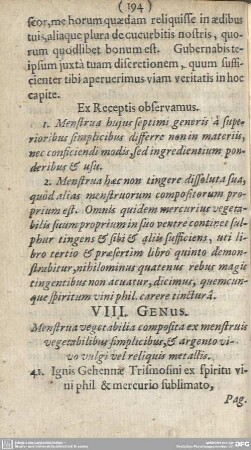 ( 194 )
fecr, me horum quædam reliquisse in ædibus
tuis, aliaque plura de cucurbitis nostris, quo-
rum quodlibet bonum est. Gubernabis te-
ipsum juxtà tuam discretionem, quum suffi-
cienter tibi aperuerimus viam veritatis in hoc
capite.
Ex Receptis observamus.
1. Menstrua hujus septimi generis à supe-
rioribus simplicibus differre non in materiis,
nec conficiendi modis, sed ingredientium pon-
deribus & usu.
2. Menstrua hæc non tingere dissoluta sua,
quòd alias menstruorum compositorum pro-
prium est. Omnis quidem mercurius vegeta-
bilis sicum proprium in suo ventre continet sul-
phur tingens & sibi & aliis sufficiens, uti li-
bro tertio & præsertim libro quinto demon-
strabitur, nihilominus quatenus rebus magis
tingentibus non acuatur, dicimus, quemcun-
que spiritum vini phil. carere tincturâ.
VIII. GENUS.
Menstrua vegetabilia composita ex menstruis
vegetabilibus simplicibus, & argento vi-
vo vulgi vel reliquis metallis.
41. Ignis Gehennæ Trismosini ex spiritu vi-
ni phil & mercurio sublimato,
Pag.